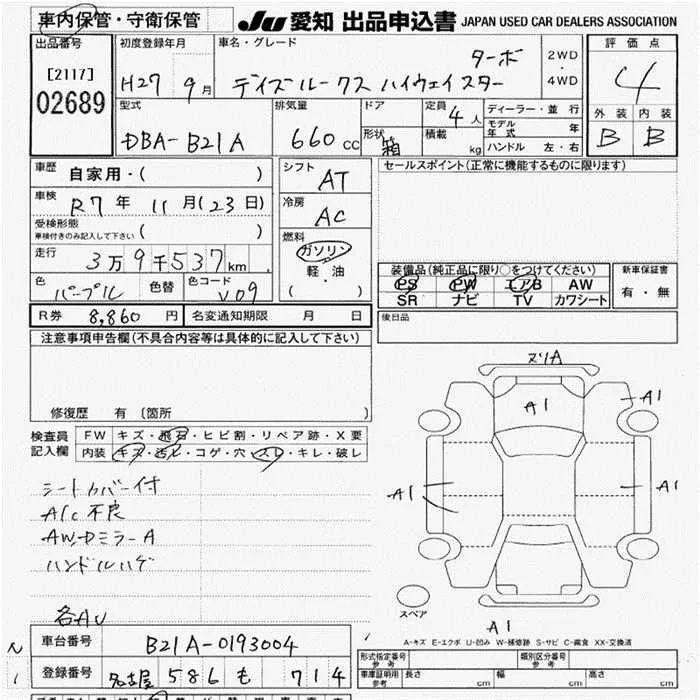 車内保管・守衛保管 JU 愛知 出品申込書 JAPAN USED CAR DEALERS ASSOCIATION
出品番号
[2117]
02689
初度登録年月
H27 9月
車名・グレード
ターボ
デイズルークス ハイウェイスター
2WD
・
4WD
評価点
4
外装 内装
B B
型式
DBA-B21A
排気量
660 cc
ドア
形状
箱
定員 4人
積載 kg
ディーラー・並行
モデル年式 年
ハンドル 左・右
車歴
自家用・( )
車検
R7年 11月(23日)
受検形態
車検付きのみ記入して下さい ( )
走行
3万9千537km
色
パープル
色替
色コード
V09
シフト
AT
冷房
AC
燃料
ガソリン
軽・油
( )
セールスポイント(正常に機能するものに限ります)
装備品(純正品に限り○をつけてください)
PS PW エアB AW
SR ナビ TV カワシート
新車保証書
有・無
R券 8,860円 名変通知期限 月 日
後日品
注意事項申告欄(不具合内容等は具体的に記入して下さい)
修復歴 有 〔箇所 〕
検査員
記入欄
FW キズ・飛石・ヒビ割・リペア跡・X要
内装 キズ・汚レ・コゲ・穴・スレ・キレ・破レ
シートカバー付
A/C不良
AW,DミラーA
ハンドルハゲ
各AU
ヌリA
A1
A1
A1
A1
A1
スペア
A-キズ E-エクボ U-凹み W-補修跡 S-サビ C-腐食 XX-交換済
車台番号 B21A-0193004
登録番号 名古屋 586 も 714
形式指定番号
参考
類別区分番号
参考
車庫証明用
参考
長さ cm 幅 cm 高さ cm